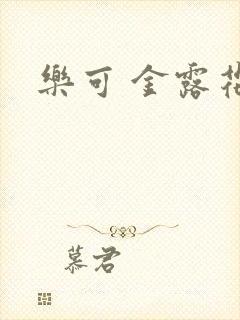 樂可 金露花
慕君